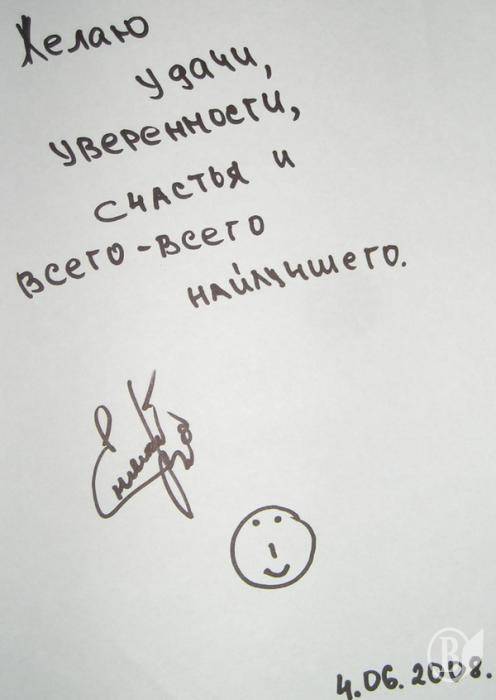 Желаю
удачи,
уверенности,
счастья и
всего-всего
найлучшего.
4.06.2008.